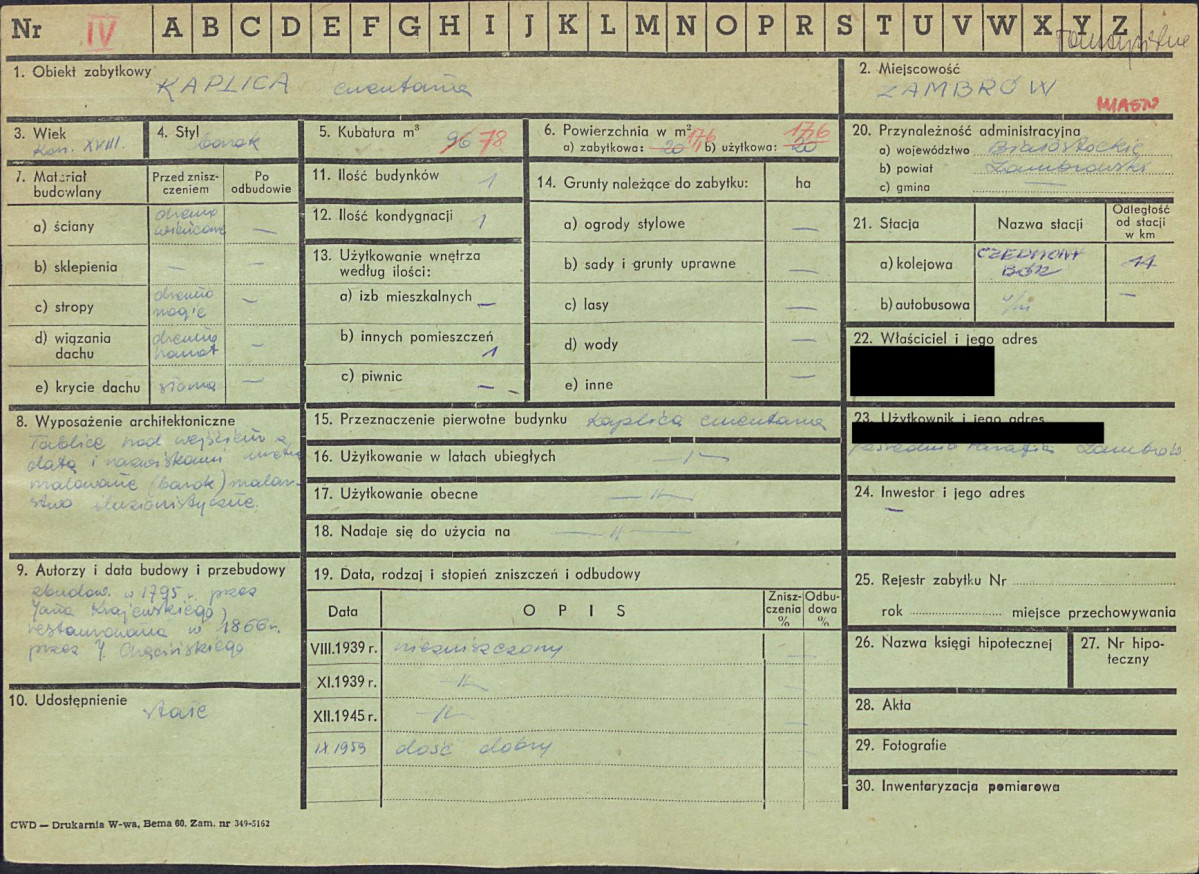 Nr IV A B C D E F G H I J K L M N O P R S T U V W X Y Z
1. Obiekt zabytkowy KAPLICA cmentarna
2. Miejscowość ZAMBRÓW
MIASTO
3. Wiek
Kon. XVIII.
4. Styl
barok
5. Kubatura m³ 96 78
6. Powierzchnia w m² 
a) zabytkowa: 20 17,6 b) użytkowa: 20 17,6
20. Przynależność administracyjna
a) województwo Białostockie
b) powiat Zambrowski
c) gmina —
7. Materiał budowlany
Przed zniszczeniem
Po odbudowie
a) ściany drewno wieńcowe —
b) sklepienia — —
c) stropy drewno nagie —
d) wiązania dachu drewno —
e) krycie dachu słoma —
11. Ilość budynków 1
12. Ilość kondygnacji 1
13. Użytkowanie wnętrza
według ilości:
a) izb mieszkalnych —
b) innych pomieszczeń
1
c) piwnic —
14. Grunty należące do zabytku: ha
a) ogrody stylowe —
b) sady i grunty uprawne —
c) lasy —
d) wody —
e) inne —
21. Stacja Nazwa stacji Odległość od stacji w km
a) kolejowa CZERWONY BÓR 11
b) autobusowa —
22. Właściciel i jego adres
8. Wyposażenie architektoniczne
Tablice nad wejściem z
datą i nazwiskami wnętrze
malowane (barok) malar-
stwo iluzjonistyczne.
15. Przeznaczenie pierwotne budynku kaplica cmentarna
16. Użytkowanie w latach ubiegłych —"—
17. Użytkowanie obecne —"—
18. Nadaje się do użycia na —"—
23. Użytkownik i jego adres
Parafia Zambrów
24. Inwestor i jego adres
—
9. Autorzy i data budowy i przebudowy
zbudow. w 1795 r. przez
Jana Krajewskiego,
restaurowana w 1866 r.
przez J. Chącińskiego
19. Data, rodzaj i stopień zniszczeń i odbudowy
Data OPIS Zniszczenia % Odbudowa %
VIII.1939 r. niezniszczony —
XI.1939 r. —"— —
XII.1945 r. —"— —
IX 1959 dość dobry —
25. Rejestr zabytku Nr
rok miejsce przechowywania
26. Nazwa księgi hipotecznej
27. Nr hipo-
teczny
10. Udostępnienie
stałe
28. Akta
29. Fotografie
30. Inwentaryzacja pomiarowa
CWD — Drukarnia W-wa, Bema 60. Zam. nr 349-5162